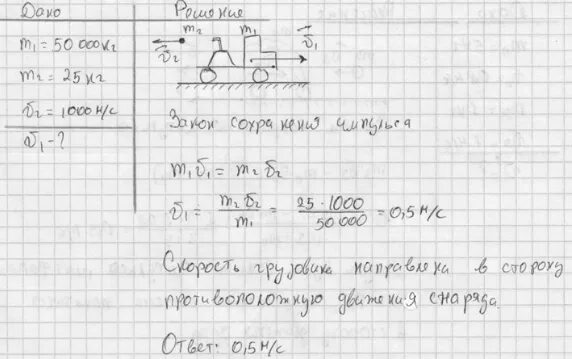 Дано
Решение
m₁ = 50 000 кг
m₂ = 25 кг
v₂ = 1000 м/с
v₁ - ?
m₂
m₁
v⃗₂
v⃗₁
Закон сохранения импульса
m₁v₁ = m₂v₂
v₁ = m₂v₂ / m₁ = 25 · 1000 / 50 000 = 0,5 м/с
Скорость грузовика направлена в сторону
противоположную движения снаряда.
Ответ: 0,5 м/с